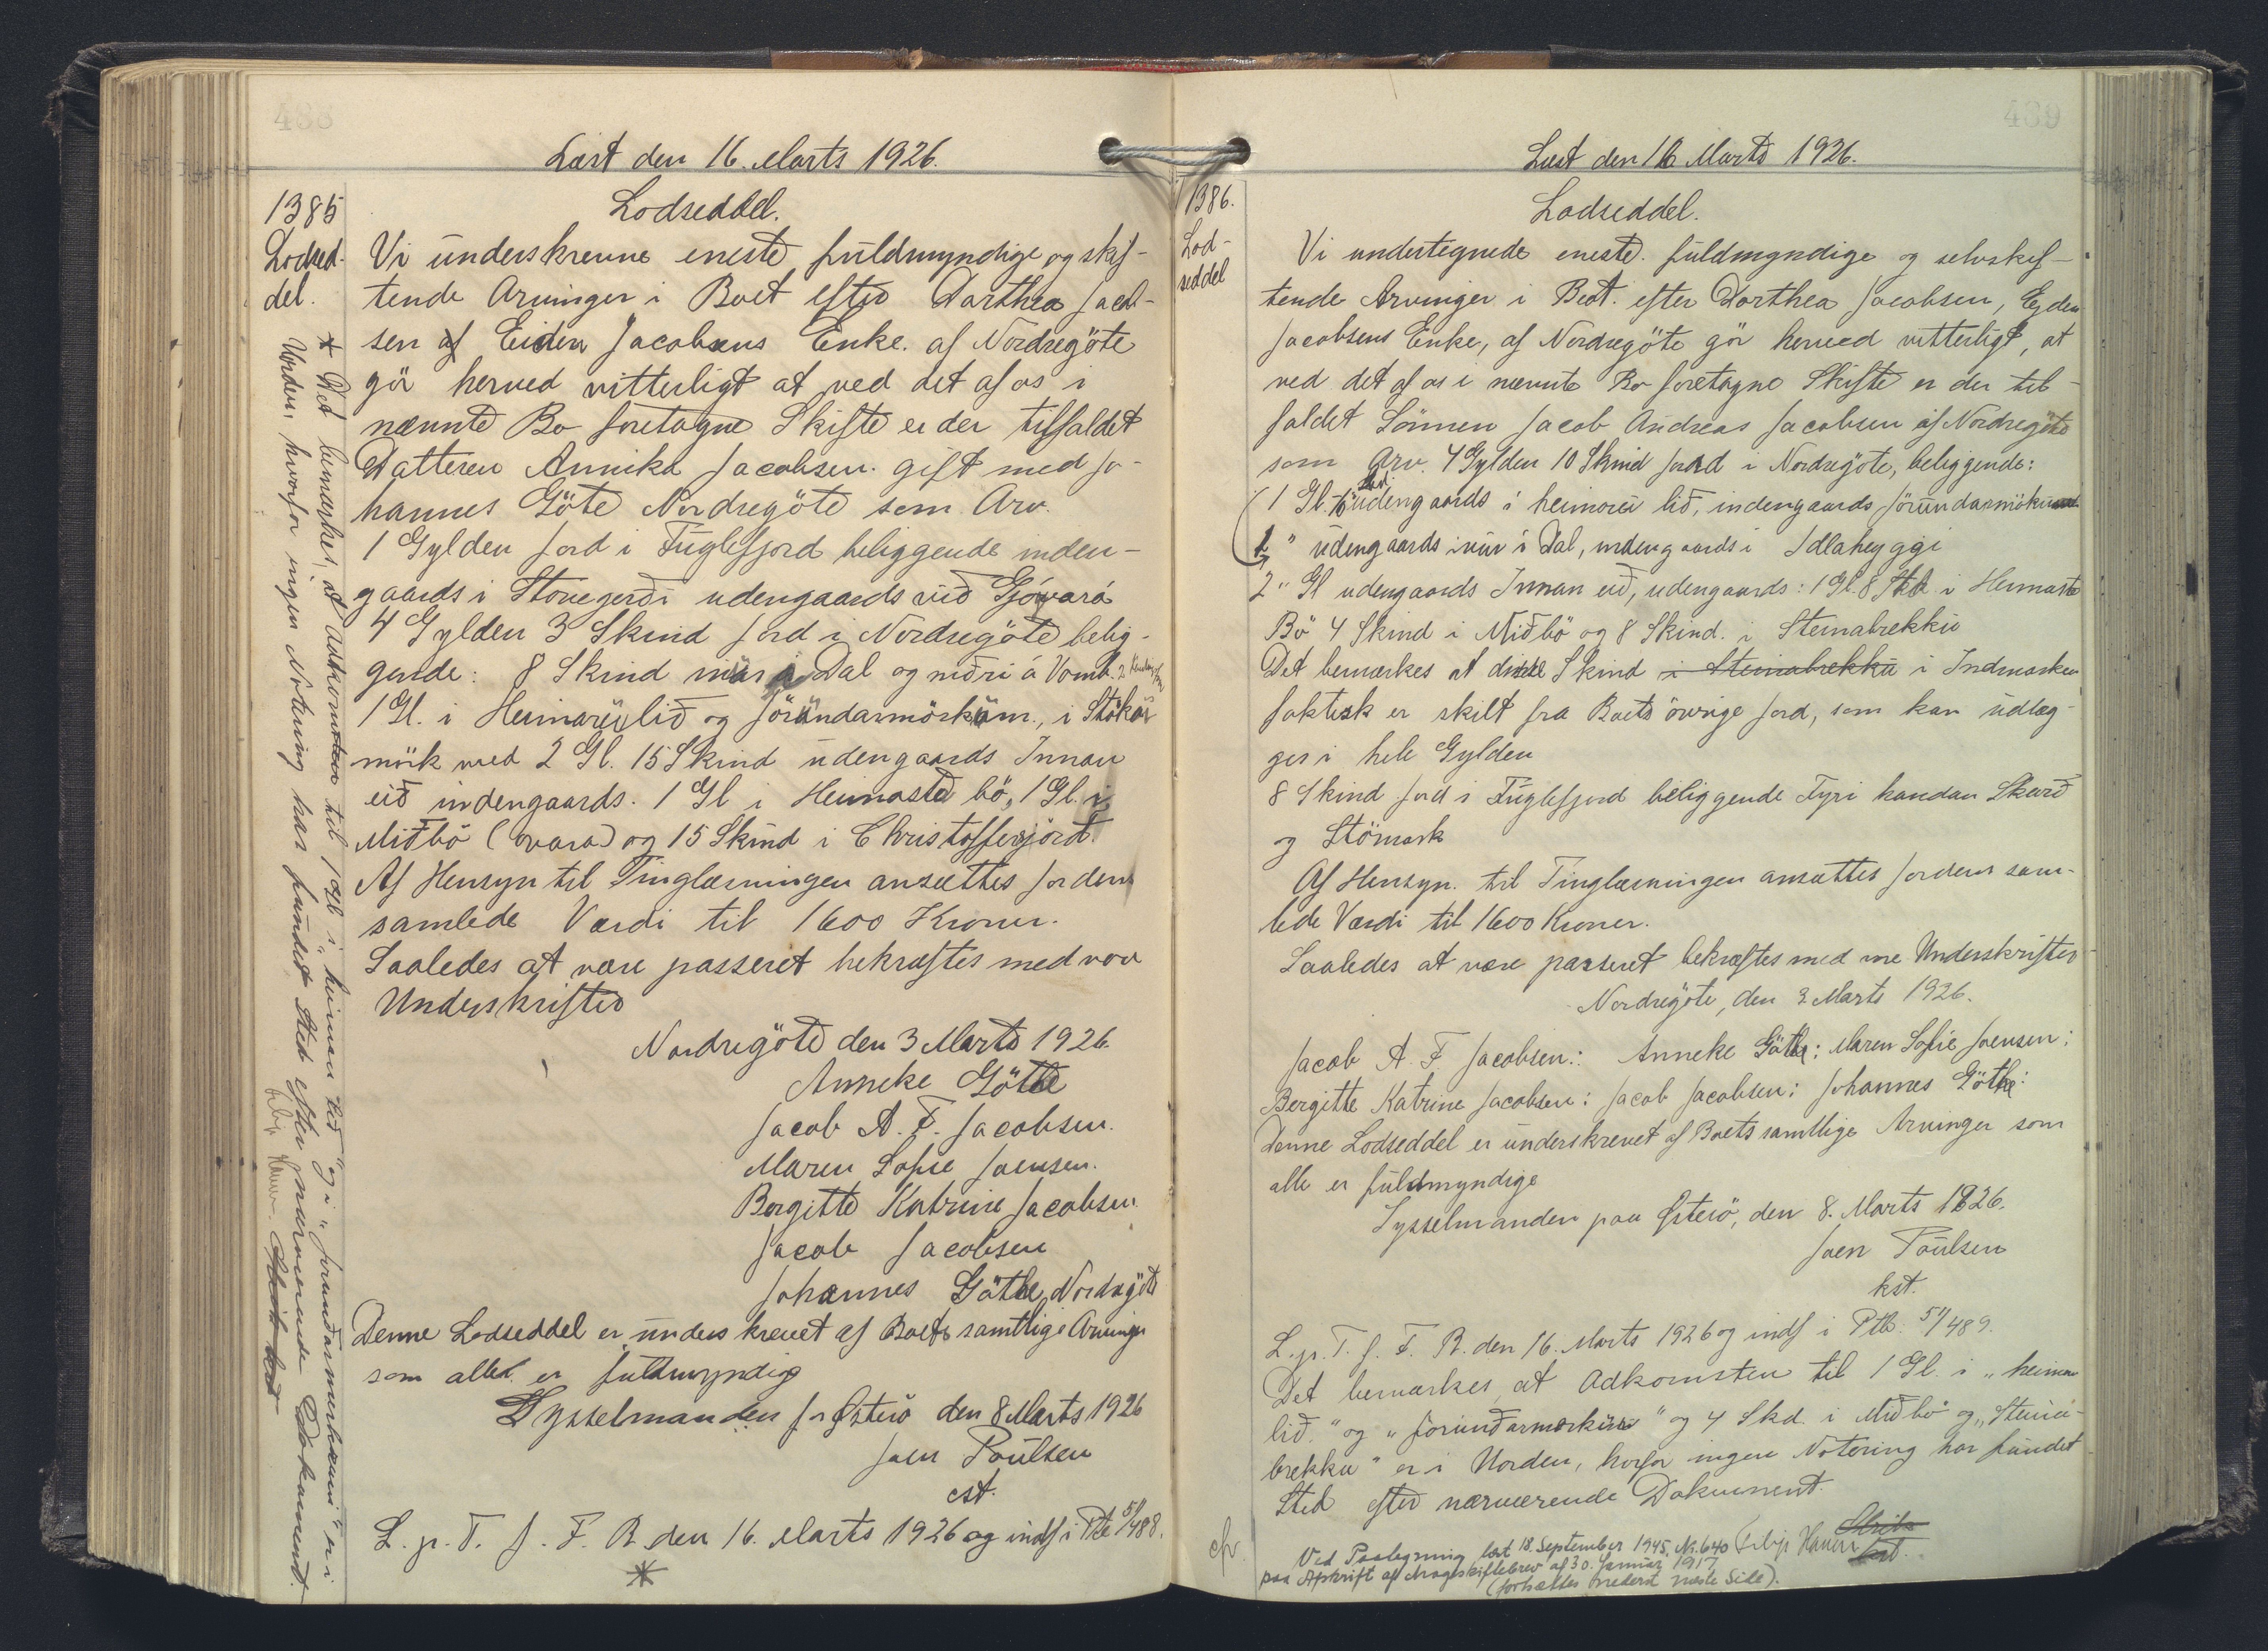 488
Læst den 16. Marts 1926.
1385
Lodsed-
del.
Lodseddel.
Vi underskrevne eneste fuldmyndige og skif-
tende Arvinger i Boet efter Dorthea Jacob-
sen af Eiden Jacobsens Enke. af Nordregöte
gör herved vitterligt at ved det af os i
nævnte Bo foretagne Skifte er der tilfaldet
Datteren Annika Jacobsen. gift med Jo-
hannes Göte Nordregöte som Arv.
1 Gylden Jord i Fuglefjord beliggende inden-
gaards i Stovegerði udengaards við Gjóvará
4 Gylden 3 Skind Jord i Nordregöte belig-
gende: 8 Skind inar i Dal og niðri á Vomb.
1 Gl. i Heimarulið og Jörundarmörkum, i Stókur
mörk med 2 Gl. 15 Skind udengaards Innan
eið indengaards. 1 Gl i Heimasta bö, 1 Gl. i
Miðbö (ovara) og 15 Skind i Christoffersjörd.
Af Hensyn til Tinglæsningen ansættes Jordens
samlede Værdi til 1600 Kroner.
Saaledes at være passeret bekræftes med vor
Underskrifter
Nordregöte den 3 Marts 1926
Anneke Göthe
Jacob A. F. Jacobsen.
Maren Sofie Joensen.
Bergitte Katrine Jacobsen
Jacob Jacobsen
Johannes Göthe Nordregöte
Denne Lodseddel er underskrevet af Boets samtlige Arvinger
som alle er fuldmyndig
Sysselmanden for Østerö den 8 Marts 1926
Joen Poulsen
cst.
L. p. T. f. F. R. den 16. Marts 1926 og indf i Ptb 51/488.
*
* Det bemærkes, at Adkomsten til 1 Gl. i "heiman lið" og i "Jorundarmerkum" er i
Uorden, hvorfor ingen Notering har fundet Sted efter nærværende Dokument.
489
Læst den 16 Marts 1926.
1386.
Lod-
seddel
Lodseddel.
Vi undertegnede eneste fuldmyndige og selvskif-
tende Arvinger i Boet. efter Dorthea Jacobsen, Eyden
Jacobsens Enke, af Nordregöte gör herved vitterligt, at
ved det af os i nævnte Bo foretagne Skifte er der til-
faldet Sönnen Jacob Andreas Jacobsen af Nordregöte
som Arv. 4 Gylden 10 Skind Jord i Nordregöte, beliggende:
1 Gl. udengaards i heimoru lið, indengaards Jörundarmöku
1 " udengaards inar i Dal, indengaards i Idlaheyggi
2 " Gl udengaards Innan eið, udengaards: 1 Gl. 8 Skd. i Heimasta
Bö 4 Skind i Miðbö og 8 Skind. i Steinabrekku
Det bemærkes at disse Skind i Steinabrekku i Indmarken
faktisk er skilt fra Boets övrige Jord, som kan udlæg-
ges i hele Gylden
8 Skind Jord i Fuglefjord beliggende Fyri handan Skarð
og Stömark
Af Hensyn. til Tinglæsningen ansættes Jordens sam-
lede Værdi til 1600 Kroner.
Saaledes at være passeret bekræftes med vore Underskrifter
Nordregöte, den 3 Marts 1926.
Jacob A. F. Jacobsen: Anneke Göthe: Maren Sofie Joensen:
Bergitte Katrine Jacobsen: Jacob Jacobsen: Johannes Göthe:
Denne Lodseddel er underskrevet af Boets samtlige Arvinger som
alle er fuldmyndige
Sysselmanden paa Østerö, den 8. Marts 1926.
Joen Poulsen
kst.
L. p. T. f. F. R. den 16. Marts 1926 og indf i Ptb. 51/489.
Det bemærkes at Adkomsten til 1 Gl. i "heiman
lið." og "Jorundarmørkum" og 4 Skd. i Miðbö og "Steina-
brekku" er i Uorden, hvorfor ingen Notering har fundet
Sted efter nærværende Dokument.
cfr.
Ved Paategning læst 18. September 1945, Nr. 640
paa Afskrift af Mageskiftebrev af 30. Januar 1917
(fortsættes nederst næste Side).